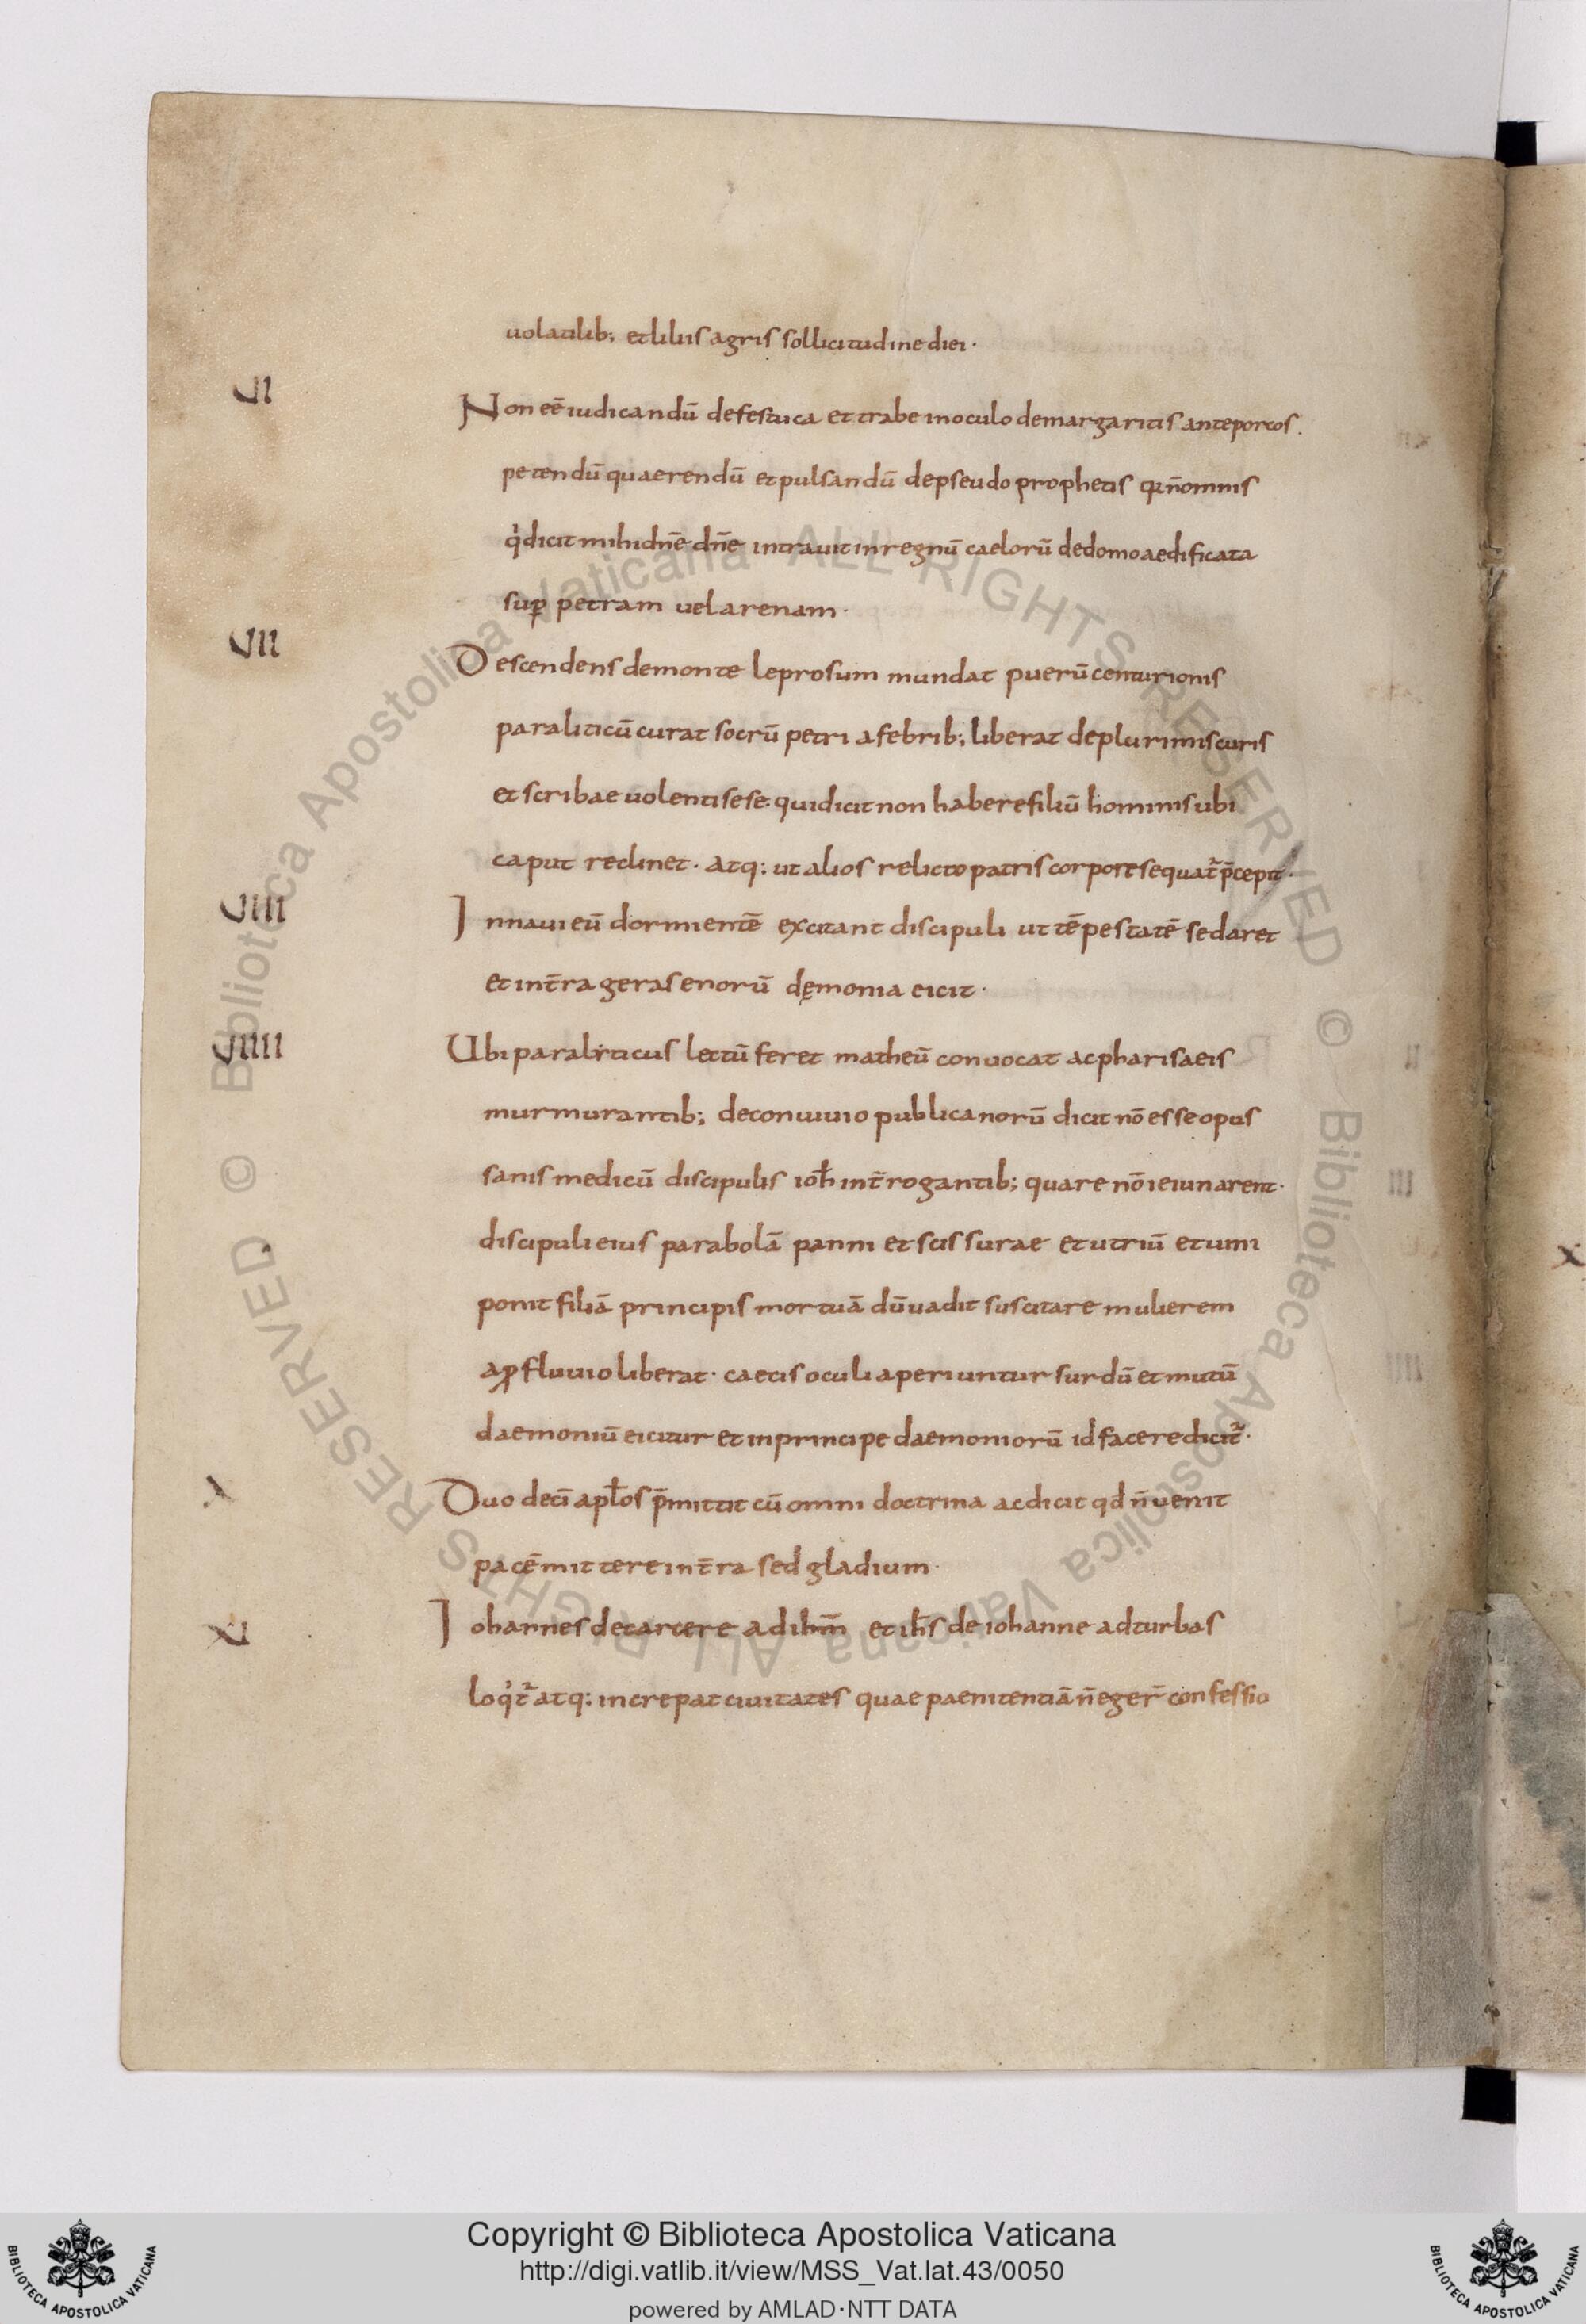 uolatilib; et liliis agris sollicitudine diei·
VI
Non eē iudicandū de festuca et trabe in oculo de margaritis ante porcos.
petendū quaerendū et pulsandū de pseudo prophetis qr n̄ omnis
q̇ dicit mihi dn̄e dn̄e intrauit in regnū caelorū de domo aedificata
sup̱ petram uel arenam·
VII
Descendens de monte leprosum mundat puerū centurionis
paraliticū curat socrū petri a febrib; liberat de plurimis curis
et scribae uolenti sese: qui dicit non habere filiū hominis ubi
caput reclinet· atq: ut alios relicto patris corpore sequat̄ p̄cepit·
VIII
In naui eū dormientē excitant discipuli ut tēpestatē sedaret
et in t̄ra gerasenorū dęmonia eicit·
VIIII
Ubi paralyticus lectū feret matheū conuocat ac pharisaeis
murmurantib; de conuiuio publicanorū dicit nō esse opus
sanis medicū discipulis ioħ int̄rogantib; quare nō ieiunarent·
discipuli eius parabolā panni et scissurae et utriū et uini
ponit filiā principis mortuā dū uadit suscitare mulierem
a ꝓfluuio liberat· caecis oculi aperiuntur surdū et mutū
daemoniū eicitur et in principe daemoniorū id facere dicit̄·
X
Duodecī apl̄os p̄mittit cū omni doctrina ac dicit qd n̄ uenit
pacē mittere in t̄ra sed gladium·
XI
Iohannes de carcere ad ihm̄ et ih̄s de iohanne ad turbas
loq̇t̄ atq: increpat ciuitates quae paenitentiā n̄ eger̄ confessio
X
© Biblioteca Apostolica Vaticana ALL RIGHTS RESERVED
© Biblioteca Apostolica Vaticana ALL RIGHTS RESERVED
Copyright © Biblioteca Apostolica Vaticana
http://digi.vatlib.it/view/MSS_Vat.lat.43/0050
powered by AMLAD·NTT DATA
BIBLIOTECA APOSTOLICA VATICANA
BIBLIOTECA APOSTOLICA VATICANA